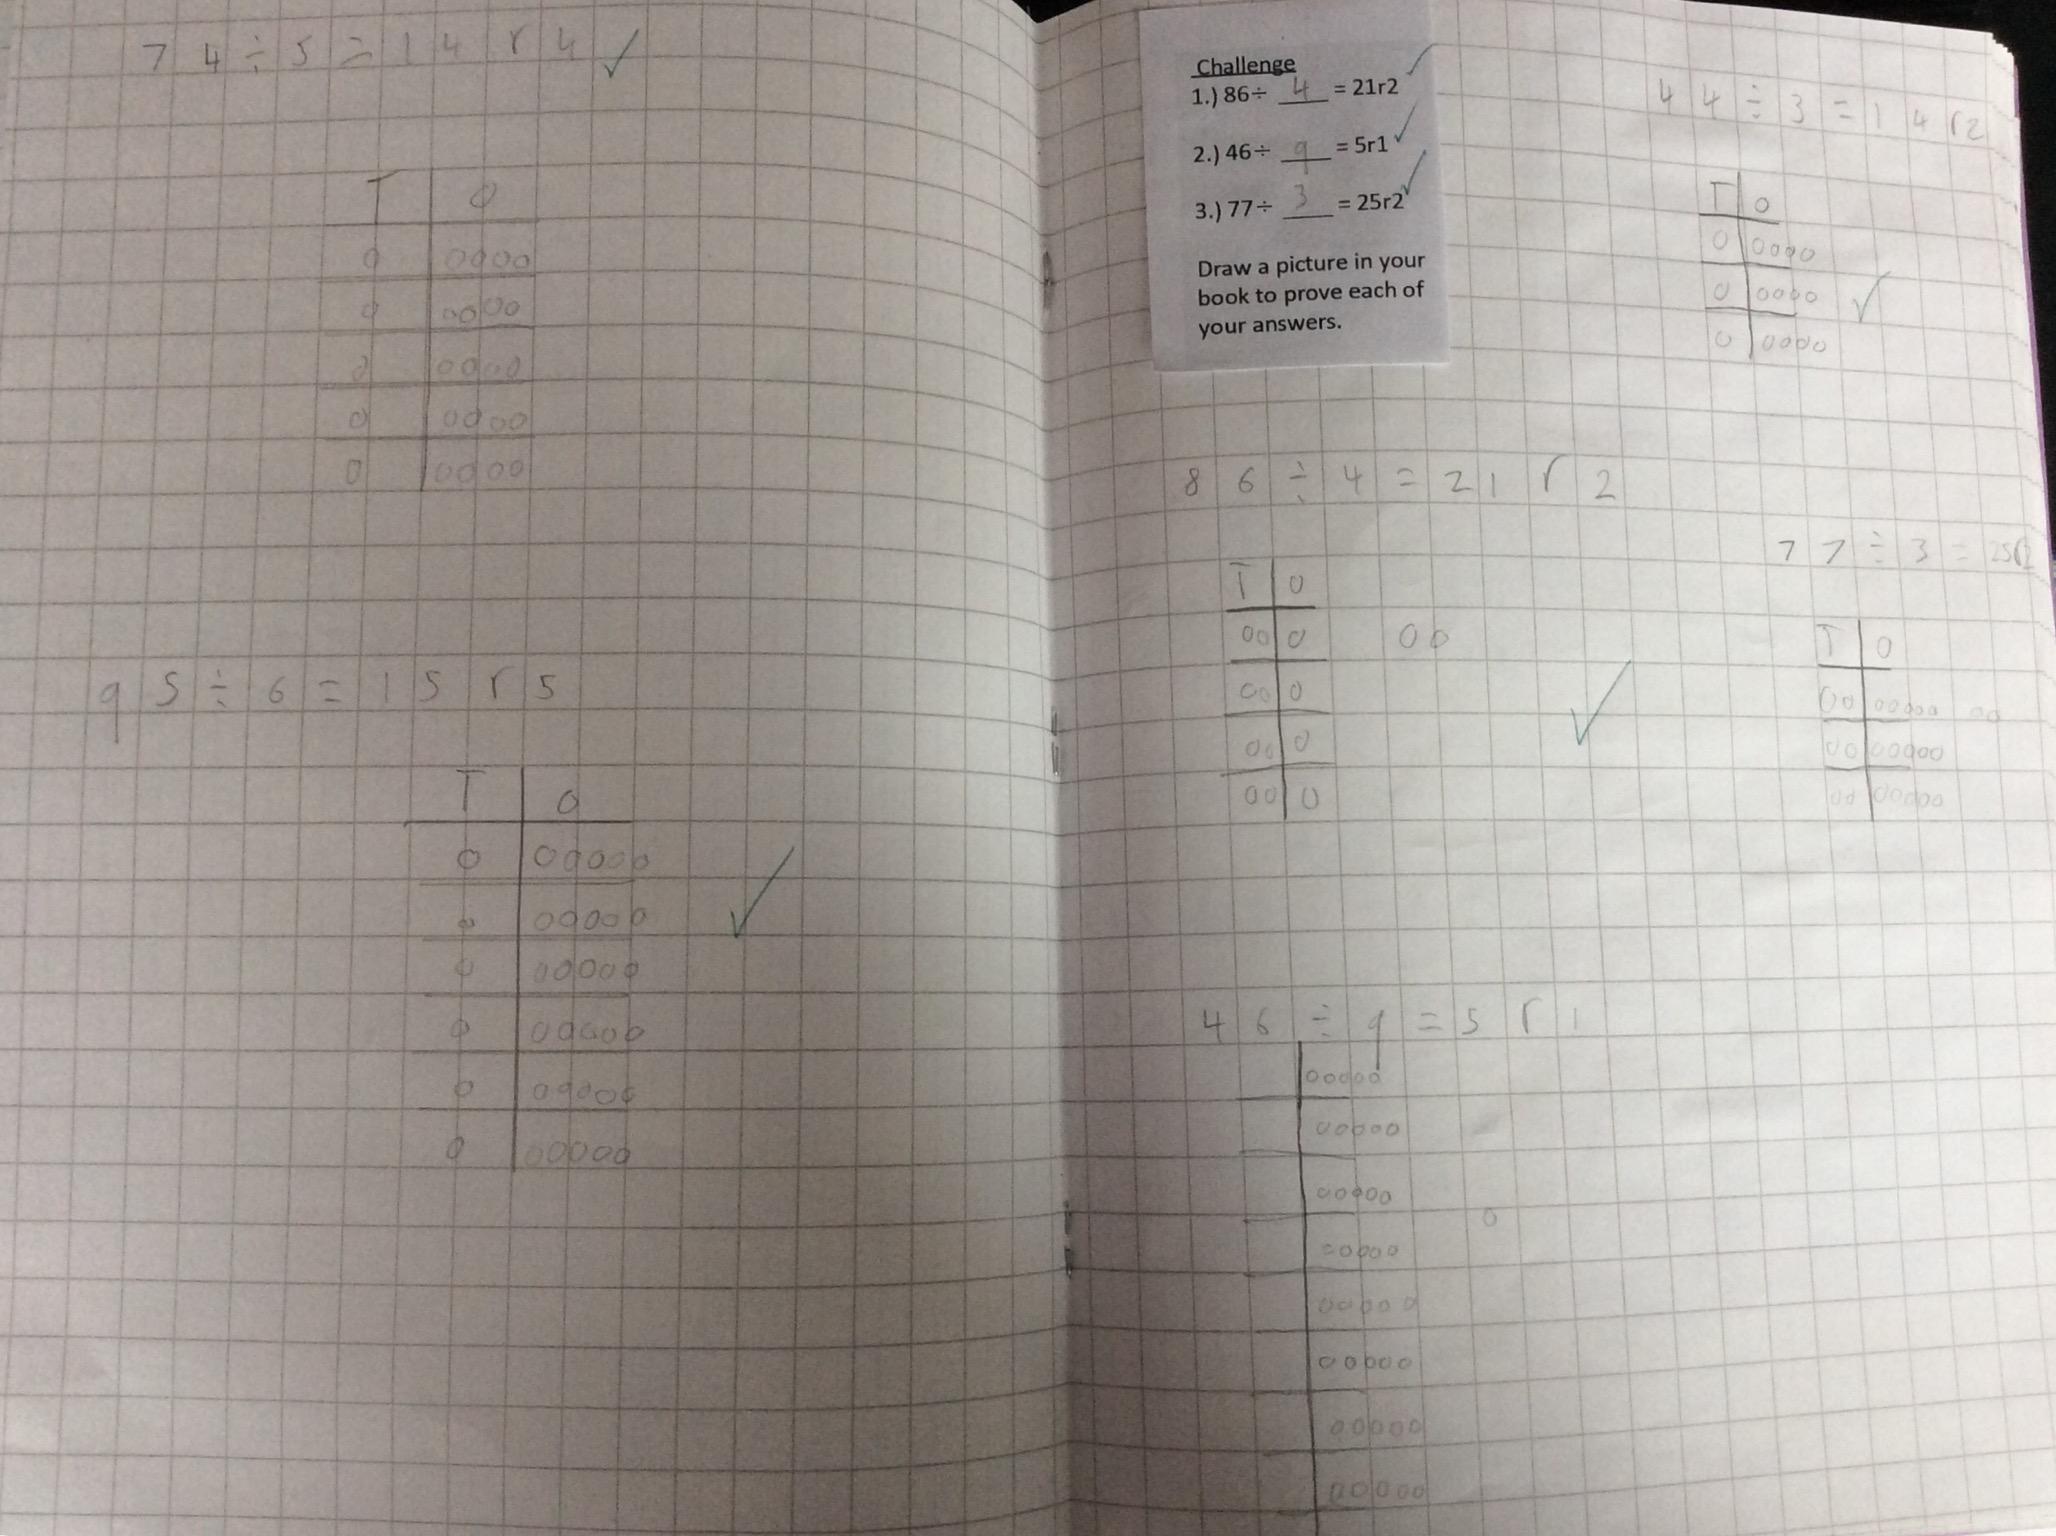 74÷5=14r4
T O
0 0000
0 0000
0 0000
0 0000
0 0000
95÷6=15r5
T O
0 00000
0 00000
0 00000
0 00000
0 00000
0 00000
Challenge
1.) 86÷ 4 = 21r2
2.) 46÷ 9 = 5r1
3.) 77÷ 3 = 25r2
Draw a picture in your
book to prove each of
your answers.
44÷3=14r2
T O
0 0000
0 0000
0 0000
86÷4=21r2
T O
00 0 00
00 0
00 0
00 0
77÷3=25r2
T O
00 00000 00
00 00000
00 00000
46÷9=5r1
00000
00000
00000
0
00000
00000
00000
00000
00000